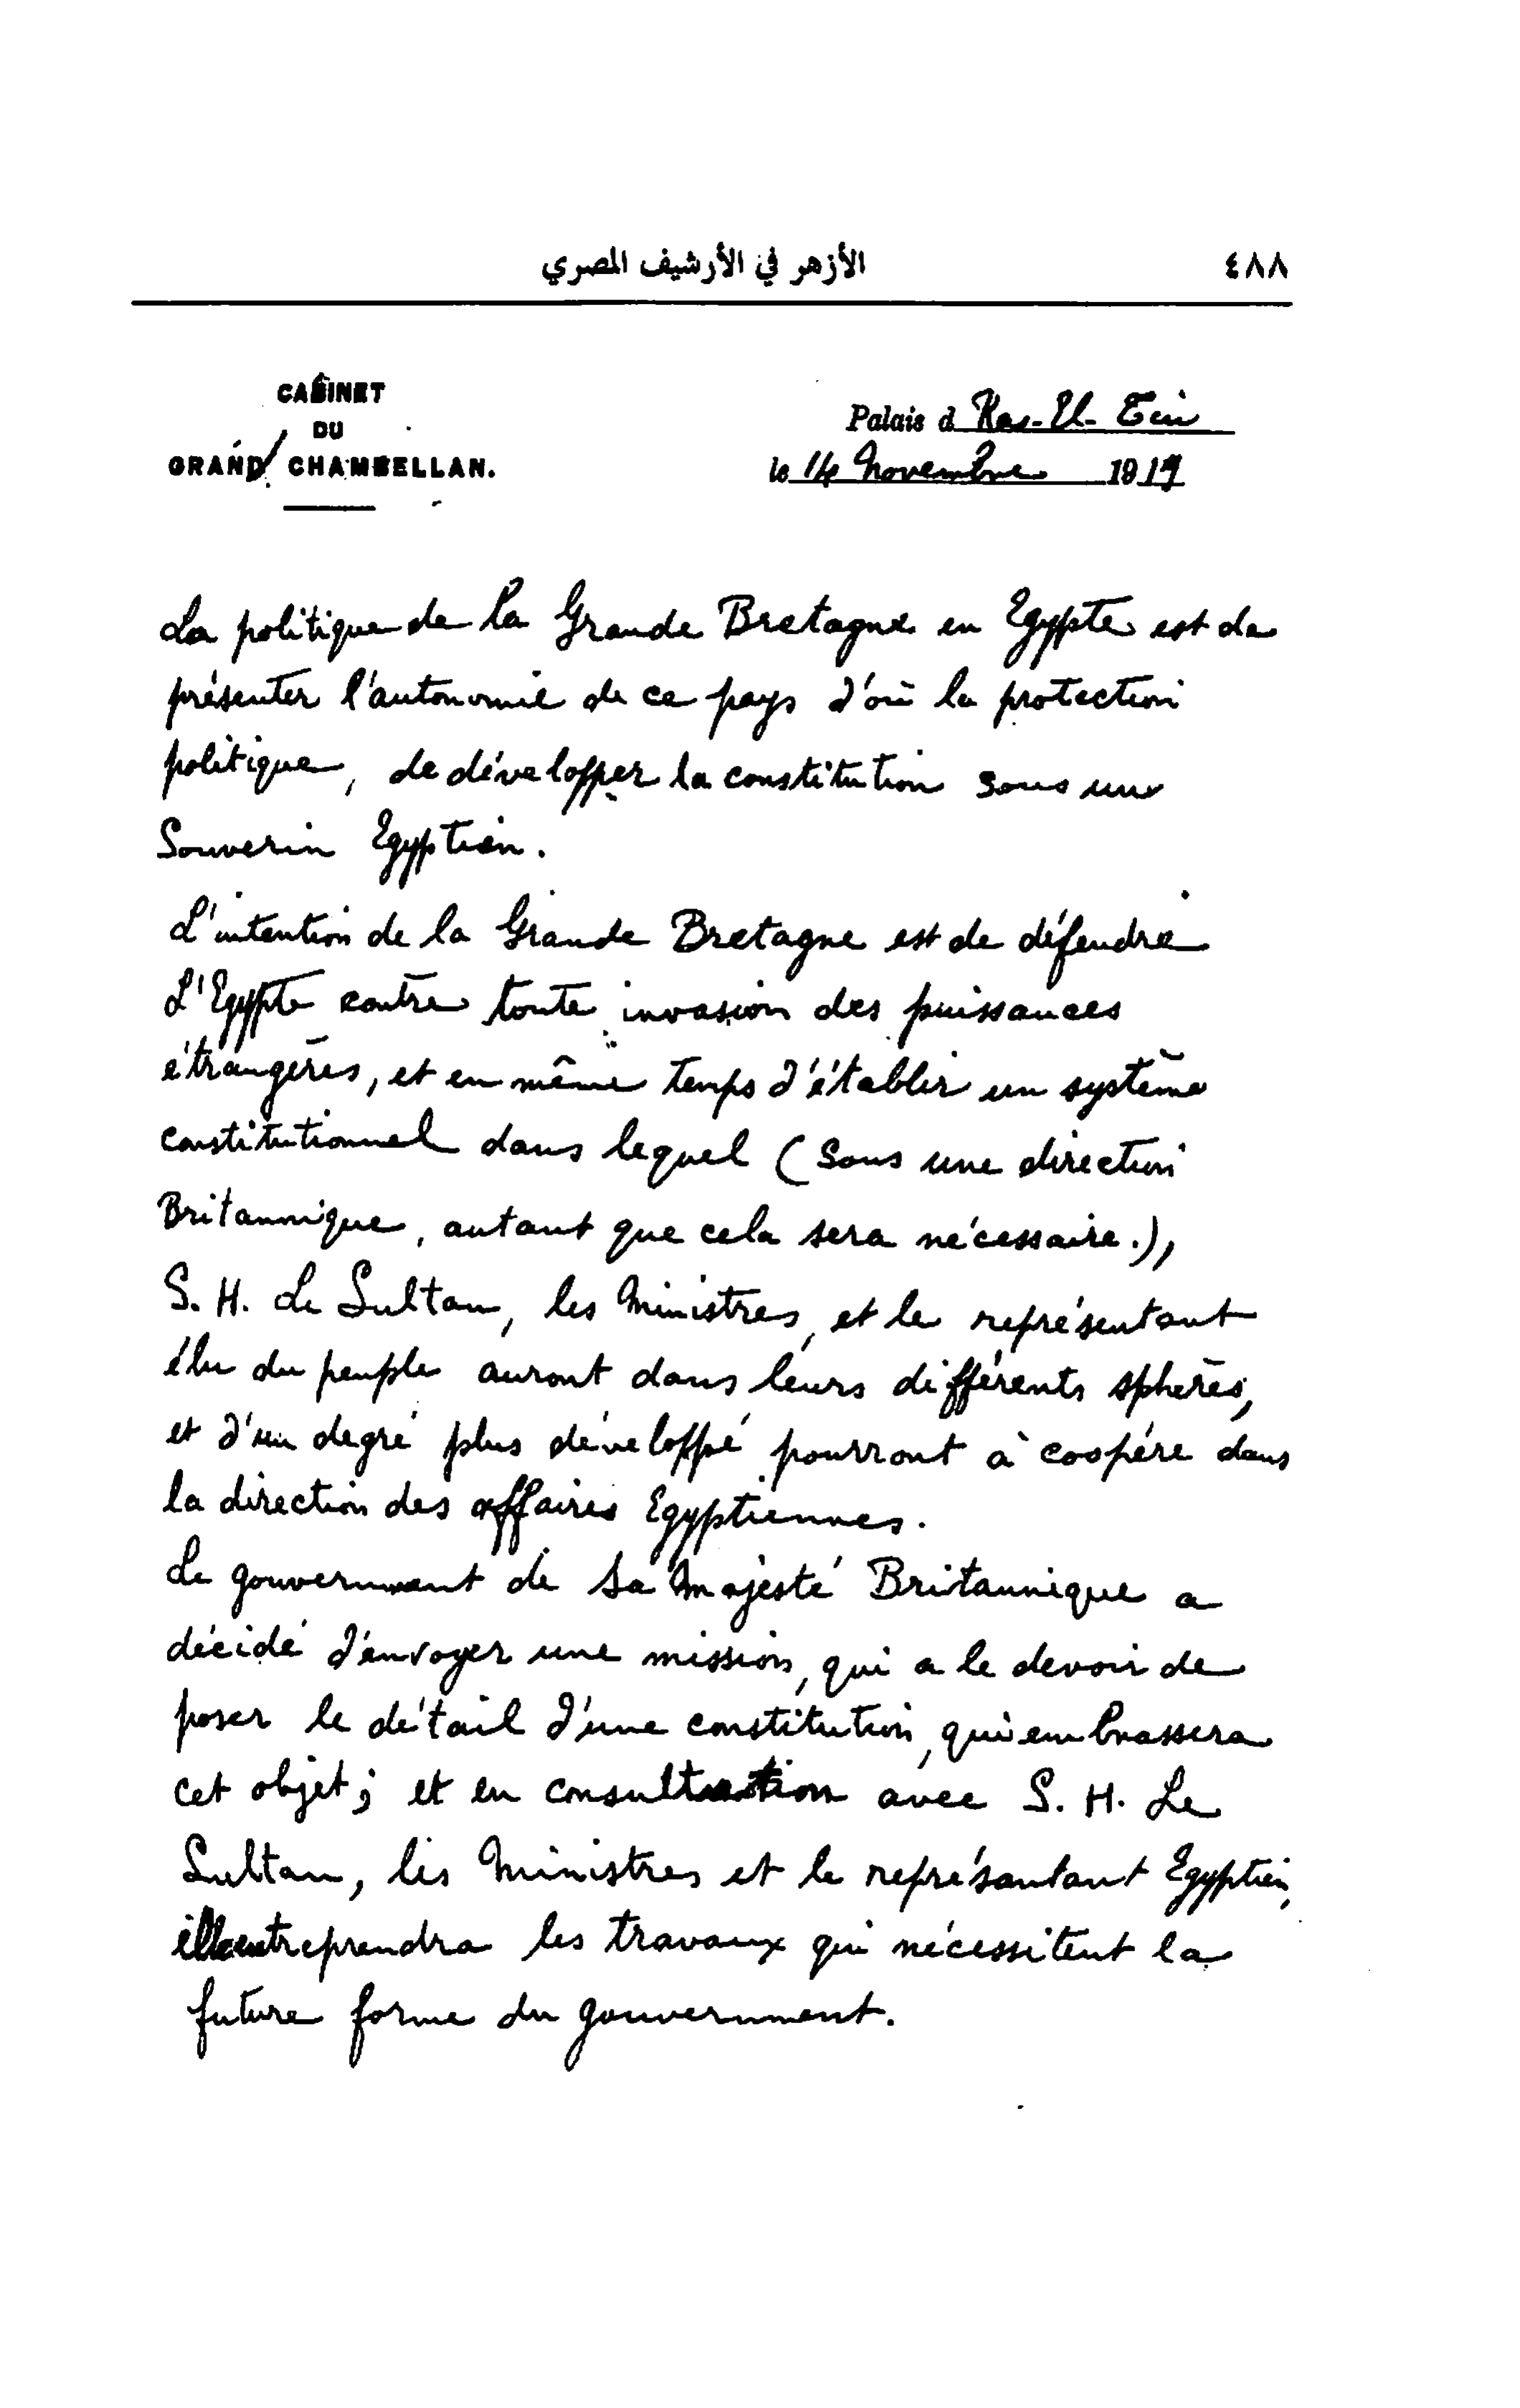 ٤٨٨
الأزهر في الأرشيف المصري
CABINET
DU
GRAND CHAMBELLAN.
Palais d Ras-El-Tin
le 14 Novembre 1919
La politique de la Grande Bretagne en Egypte est de
présenter l'autonomie de ce pays d'où la protection
politique, de développer la constitution sous un
Souverin Egyptien.
L'intention de la Grande Bretagne est de défendre
L'Egypte contre toute invasion des puissances
étrangères, et en même temps d'établir un système
constitutionnel dans lequel (Sous une direction
Britannique, autant que cela sera nécessaire.),
S. H. Le Sultan, les Ministres, et le représentant
élu du peuple auront dans leurs différents sphères,
et d'un degré plus développé pourront à coopére dans
la direction des affaires Egyptiennes.
Le gouvernment de Sa Majesté Britannique a
décidé d'envoyer une mission, qui a le devoir de
poser le détail d'une constitution, qui embrassera
cet objet; et en consultation avec S. H. Le
Sultan, les Ministres et le représantant Egyptien,
elle entreprendra les travaux qui nécessitent la
future forme du gouvernment.